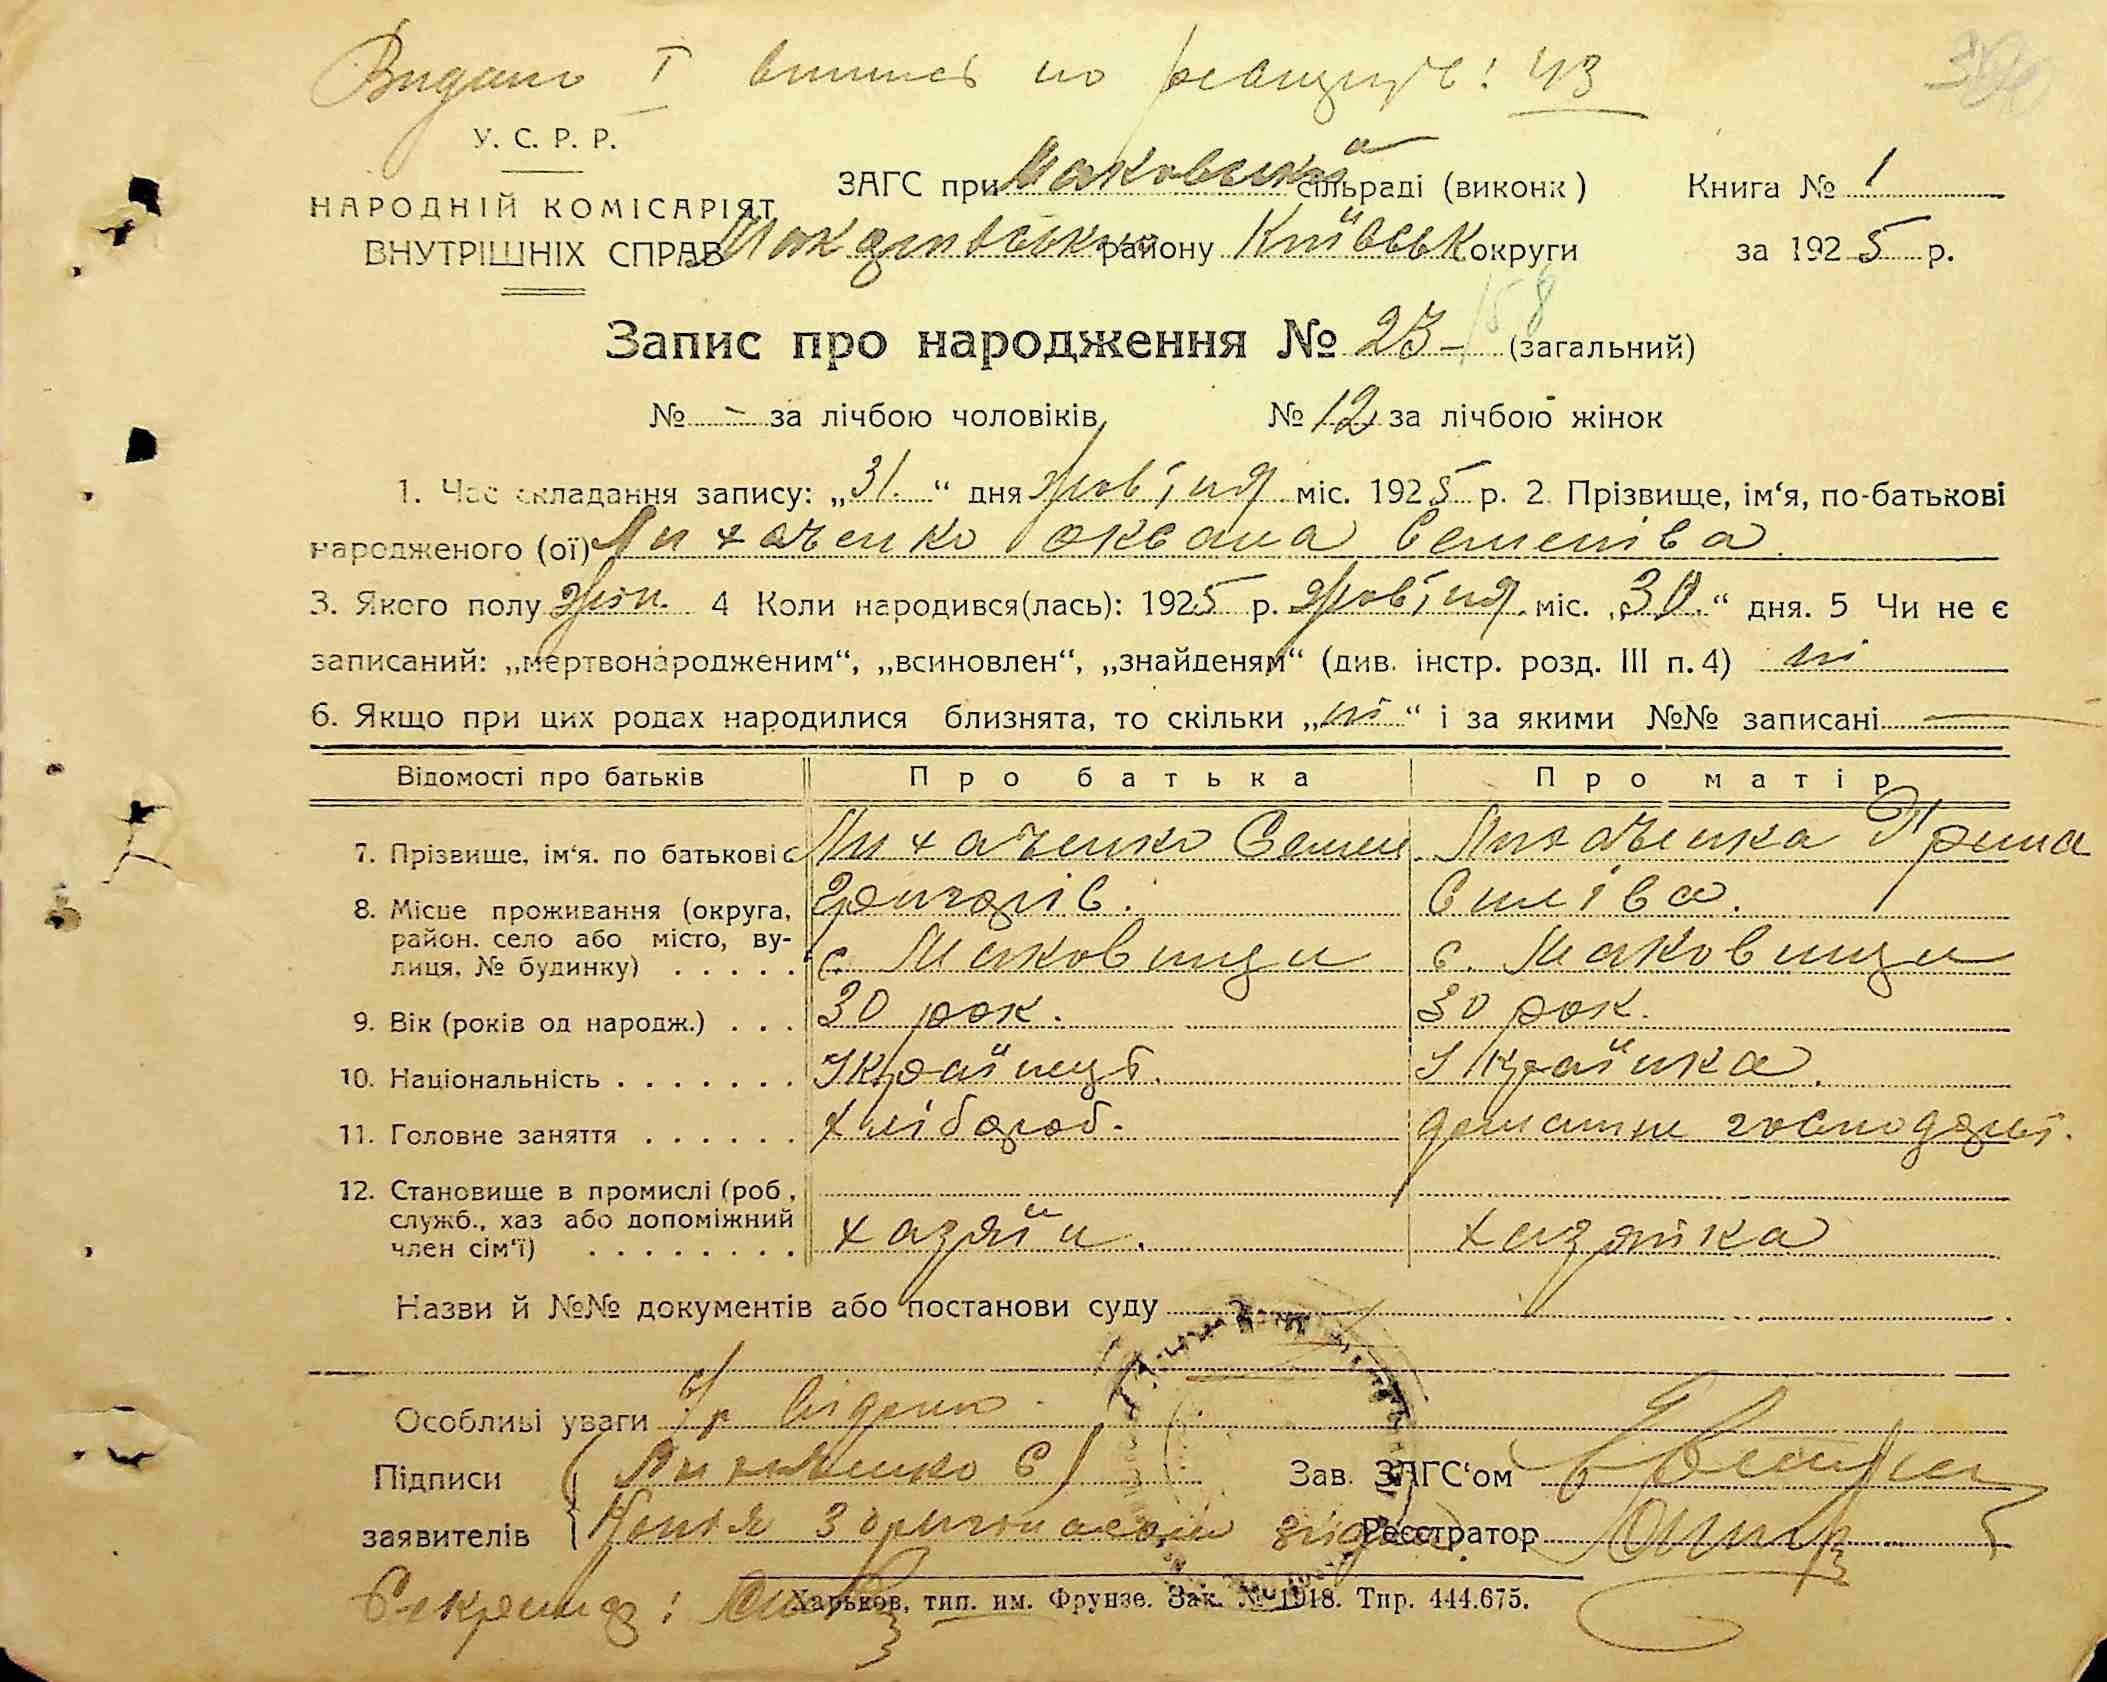 Видано I випись по реєстру: 43
У. С. Р. Р.
НАРОДНІЙ КОМІСАРІЯТ
ВНУТРІШНІХ СПРАВ
ЗАГС при Маковській сільраді (виконк)
Книга № 1
району Київськ округи
за 1925 р.
Запис про народження № 23 (загальний)
158
№ - за лічбою чоловіків № 12 за лічбою жінок
1. Час складання запису: „31.“ дня міс. 1925 р. 2. Прізвище, ім‘я, по-батькові
народженого (ої) Лихаченко Оксана Семенівa
3. Якого полу жін. 4 Коли народився(лась): 1925 р. міс. „30.“ дня. 5 Чи не є
записаний: „мертвонародженим“, „всиновлен“, „знайденям“ (див. інстр. розд. III п. 4) ні
6. Якщо при цих родах народилися близнята, то скільки „ні“ і за якими №№ записані —
Відомості про батьків Про батька Про матір
7. Прізвище, ім‘я. по батькові Лихаченко Семен Лихаченка Ірина
Григорів. Силівa.
8. Місце проживання (округа,
район. село або місто, ву-
лиця, № будинку) . . . . . с. Маковищи с. Маковищи
9. Вік (років од народж.) . . . 30 рок. 30 рок.
10. Національність . . . . . . . Українець. Українка.
11. Головне заняття . . . . . . хлібороб. домашнє господарст.
12. Становище в промислі (роб,
служб., хаз або допоміжний
член сім‘ї) . . . . . . . . . хазяїн. хазяйка
Назви й №№ документів або постанови суду
Особливі уваги
Підписи Лихаченко С Зав. ЗАГС‘ом
заявителів Копія з оригіналом згідна. Реєстратор
Секретар:
Харьков, тип. им. Фрунзе. Зак. № 1918. Тир. 444.675.